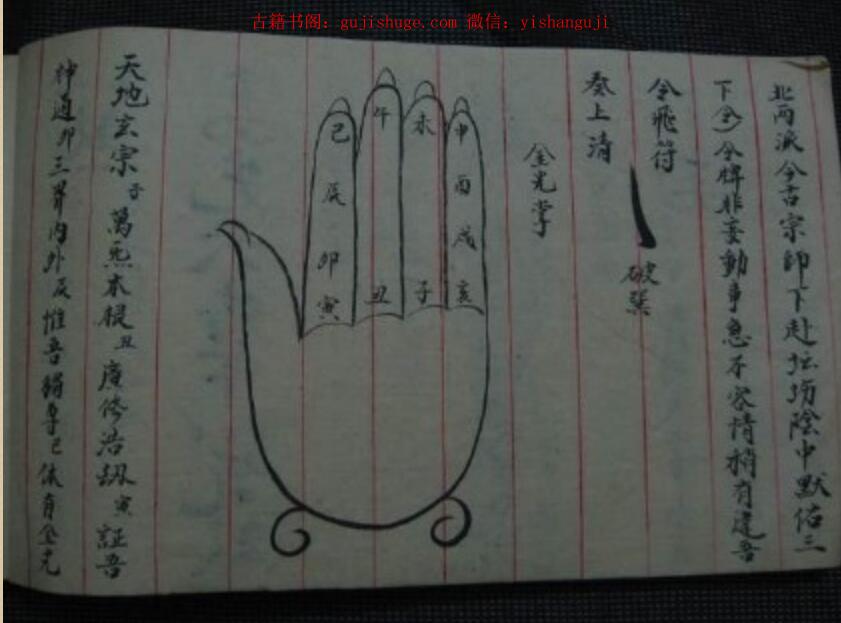 古籍书阁：gujishuge.com 微信：yishanguji
北両派今古宗師下赴坛塲陰中默佑三
下令令牌非妄動事急不容情稍有違吾
令飛符
破獄
奏上清
金光掌
申 酉 戌 亥
未 子
午 丑
巳 辰 卯 寅
天地玄宗子萬炁本根丑廣修浩劫寅証吾
神通卯三界內外辰惟吾獨尊巳体有金光